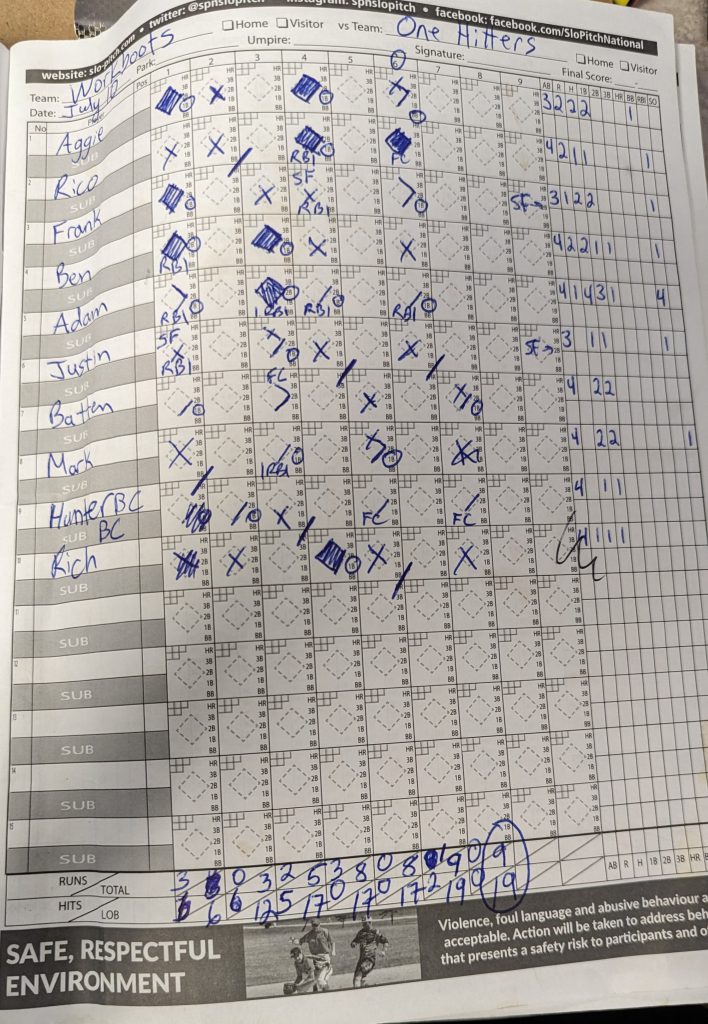 website: slo-pitch.com • twitter: @spnslopitch • instagram: spnslopitch • facebook: facebook.com/SloPitchNational
Team: Workboots Park: Home Visitor vs Team: One Hitters Home Visitor
Date: July 10 Umpire: Signature: Final Score:
No Pos 1 2 3 4 5 6 7 8 9 AB R H 1B 2B 3B HR BB RBI SO
1 Aggie 3 2 2 2 1
SUB RBI FC
2 Rico 4 2 1 1 1
SUB SF RBI
3 Frank SF→ 3 1 2 2 1
SUB
4 Ben RBI 4 2 2 1 1 1
SUB
5 Adam RBI 1RBI RBI RBI 4 1 4 3 1 4
SUB SF
6 Justin RBI SF→ 3 1 1 1
SUB FC
7 Batten 4 2 2
SUB
8 Mark 1RBI 4 2 2 1
SUB
9 Hunter BC FC FC 4 1 1
BC
10 Rich 4 1 1 1
SUB
11
SUB
12
SUB
13
SUB
14
SUB
15
SUB
RUNS TOTAL 3 3 0 3 2 5 3 8 0 8 1 9 0 9
HITS LOB 6 6 6 12 5 17 0 17 0 17 2 19 0 19
AB R H 1B 2B 3B HR
SAFE, RESPECTFUL
ENVIRONMENT
Violence, foul language and abusive behaviour
acceptable. Action will be taken to address
that presents a safety risk to participants and